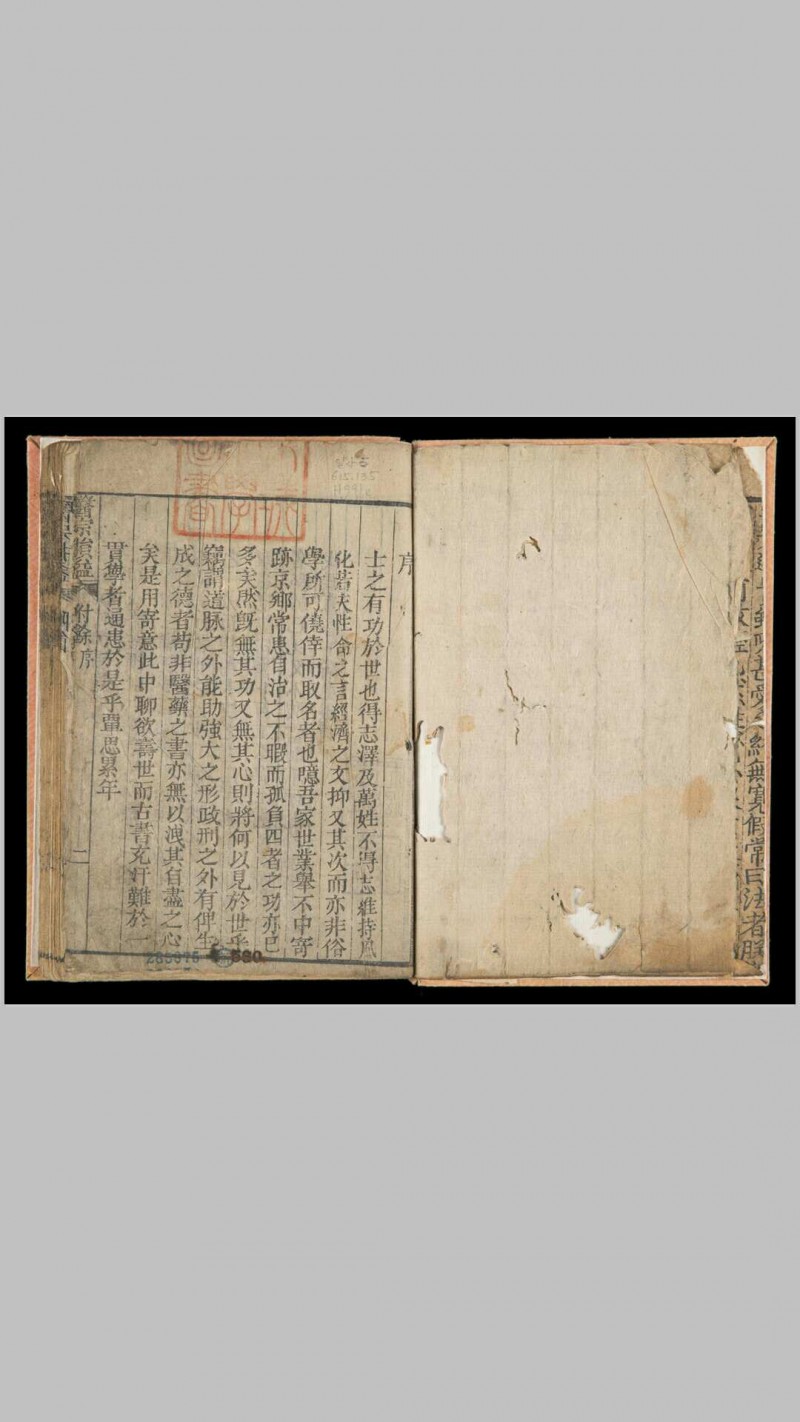 序
士之有功於世也得志澤及萬姓不得志維持風
化若夫性命之言經濟之文抑又其次而亦非俗
學所可僥倖而取名者也噫吾家世業擧不中寄
跡京鄉常患自治之不暇而孤負四者之功亦已
多矣然旣無其功又無其心則將何以見於世乎
竊謂道脉之外能助強大之形政刑之外有俾生
成之德者苟非醫藥之書亦無以洩其自盡之心
矣是用寄意此中聊欲壽世而古書充汗難於一
貫學者通患於是乎覃思累年
醫宗損益 附餘 序 二
285975
580
無寬假常曰法者